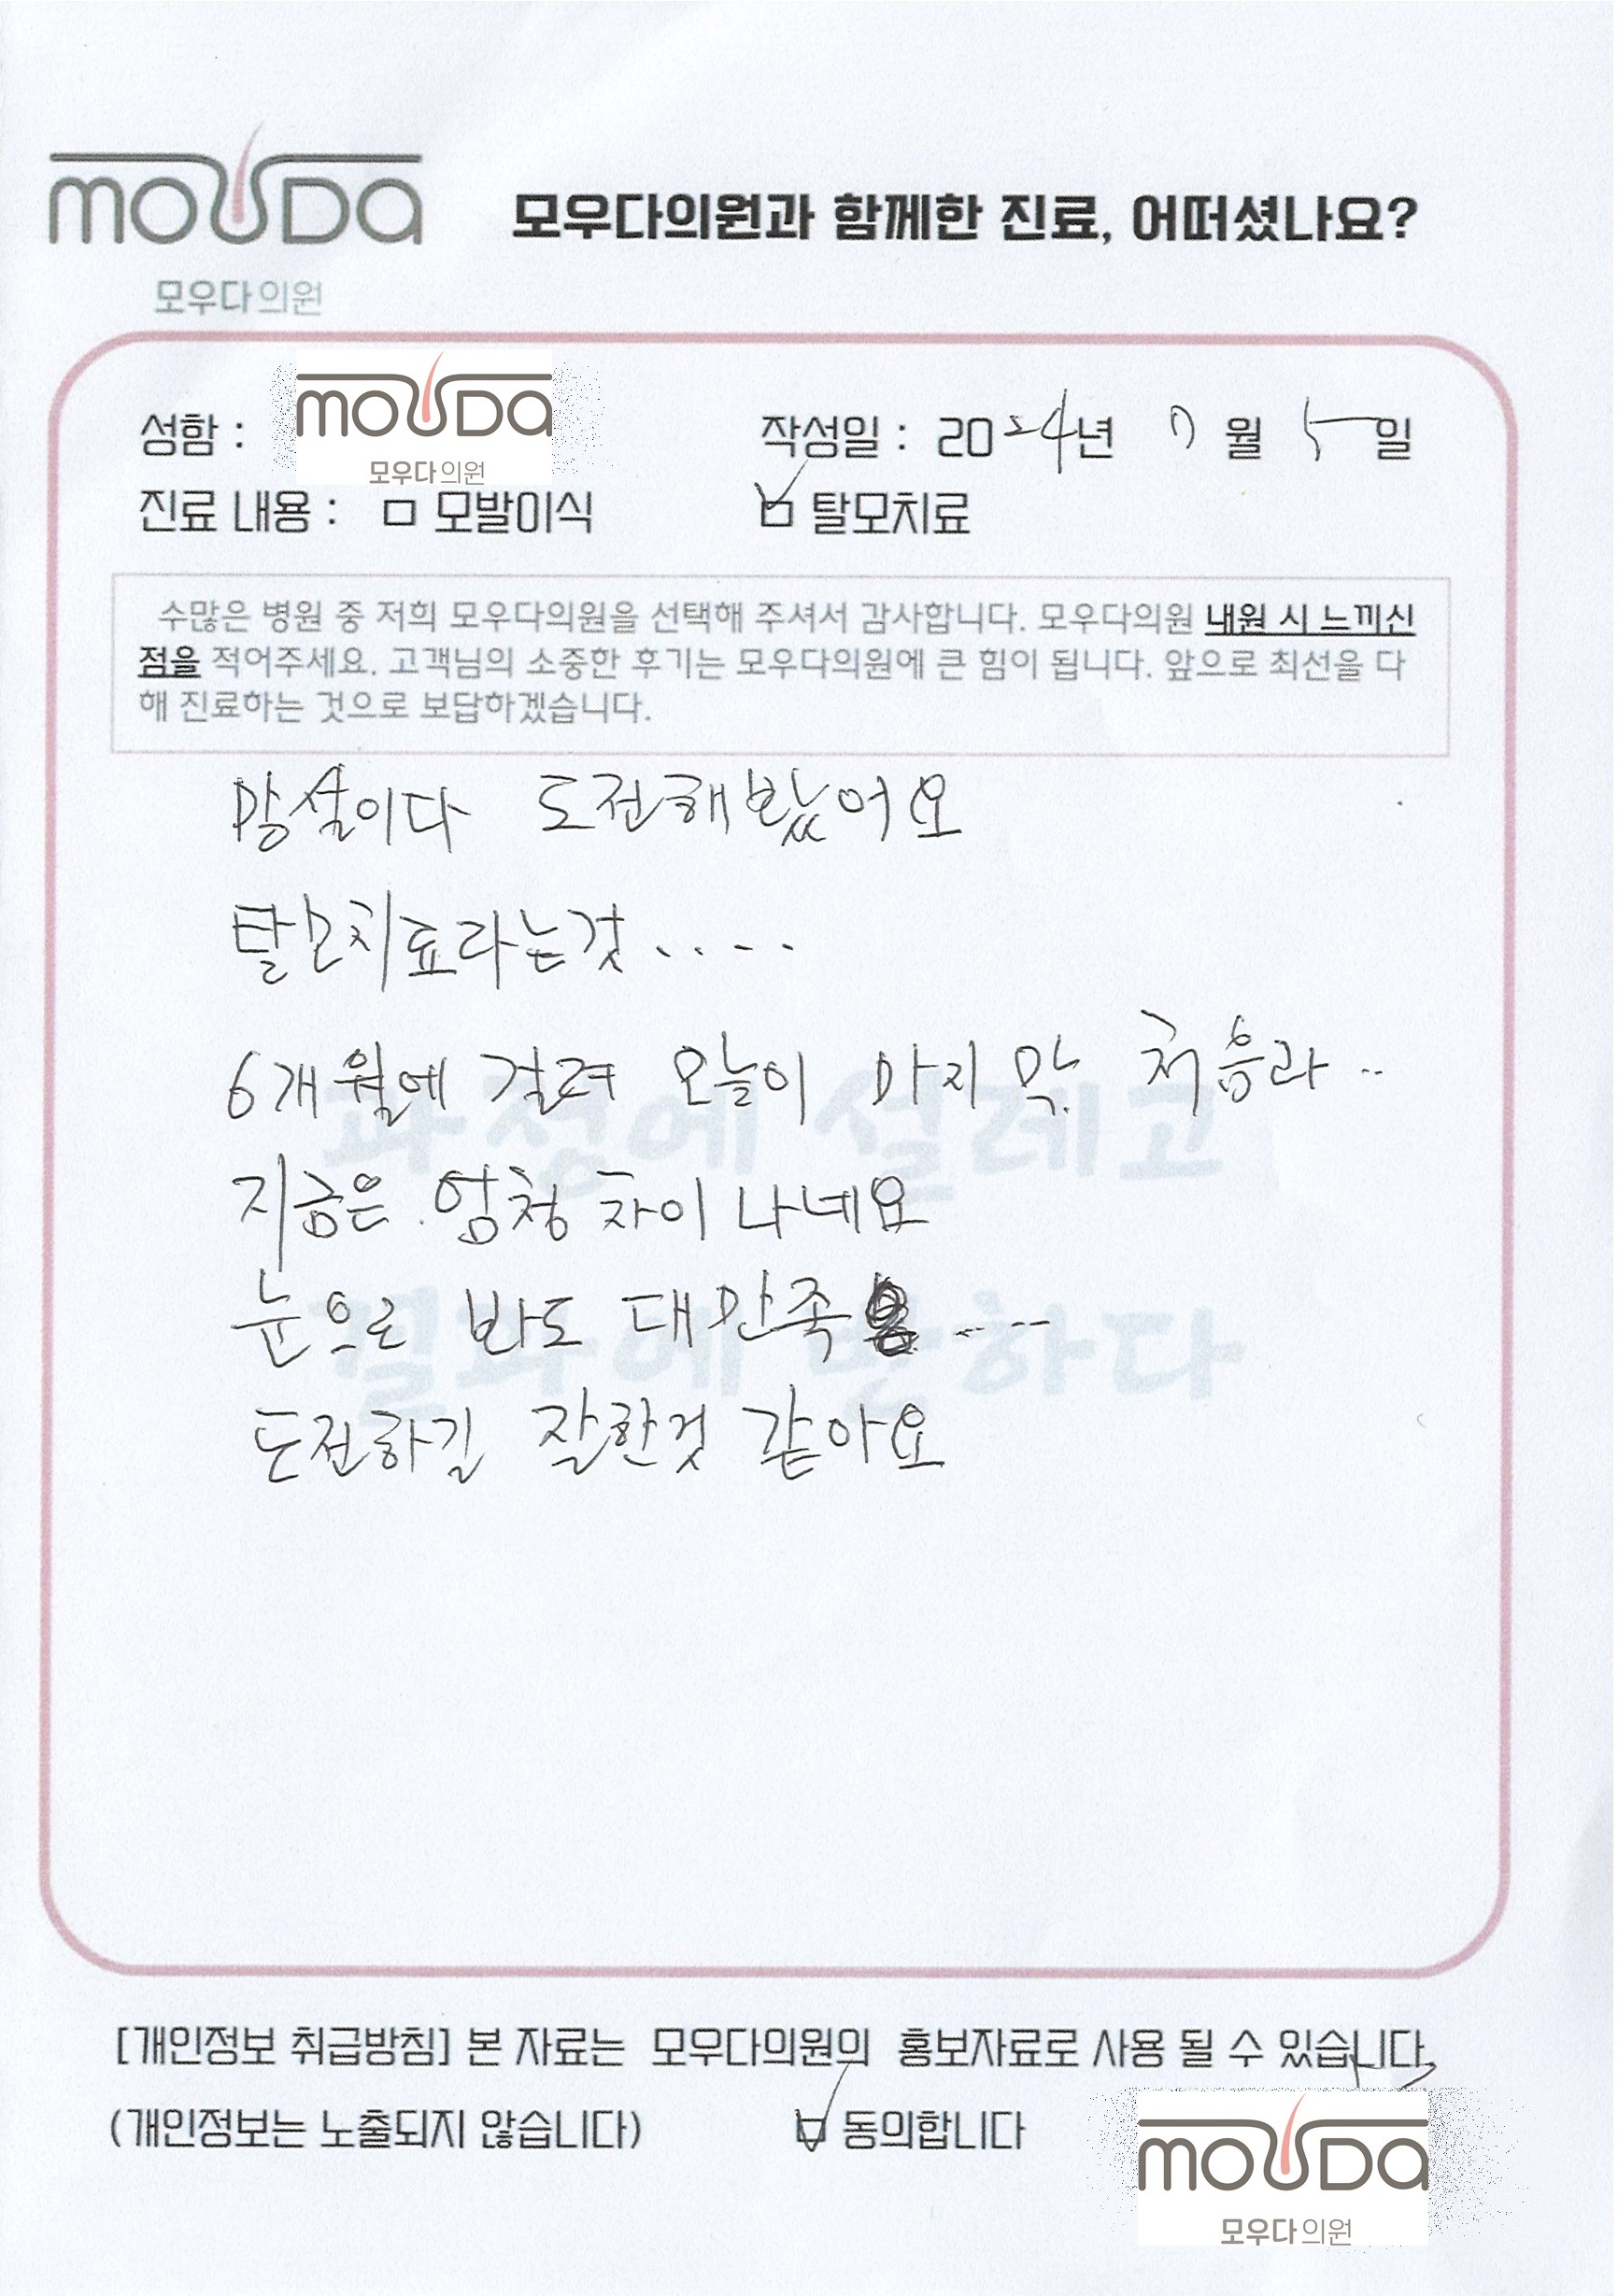 mouDa
모우다의원과 함께한 진료, 어떠셨나요?
모우다의원
성함 :
mouDa
모우다의원
작성일 : 2024년 7월 5일
진료 내용 : □ 모발이식 ☑ 탈모치료
수많은 병원 중 저희 모우다의원을 선택해 주셔서 감사합니다. 모우다의원 내원 시 느끼신
점을 적어주세요. 고객님의 소중한 후기는 모우다의원에 큰 힘이 됩니다. 앞으로 최선을 다
해 진료하는 것으로 보답하겠습니다.
망설이다 도전해봤어요
탈모치료라는것.....
6개월에 걸려 오늘이 마지막. 처음과..
지금은 엄청 차이 나네요
눈으로 봐도 대만족 ....
도전하길 잘한것 같아요
과정에 설레고
결과에 반하다
[개인정보 취급방침] 본 자료는 모우다의원의 홍보자료로 사용 될 수 있습니다.
(개인정보는 노출되지 않습니다) ☑ 동의합니다
mouDa
모우다의원